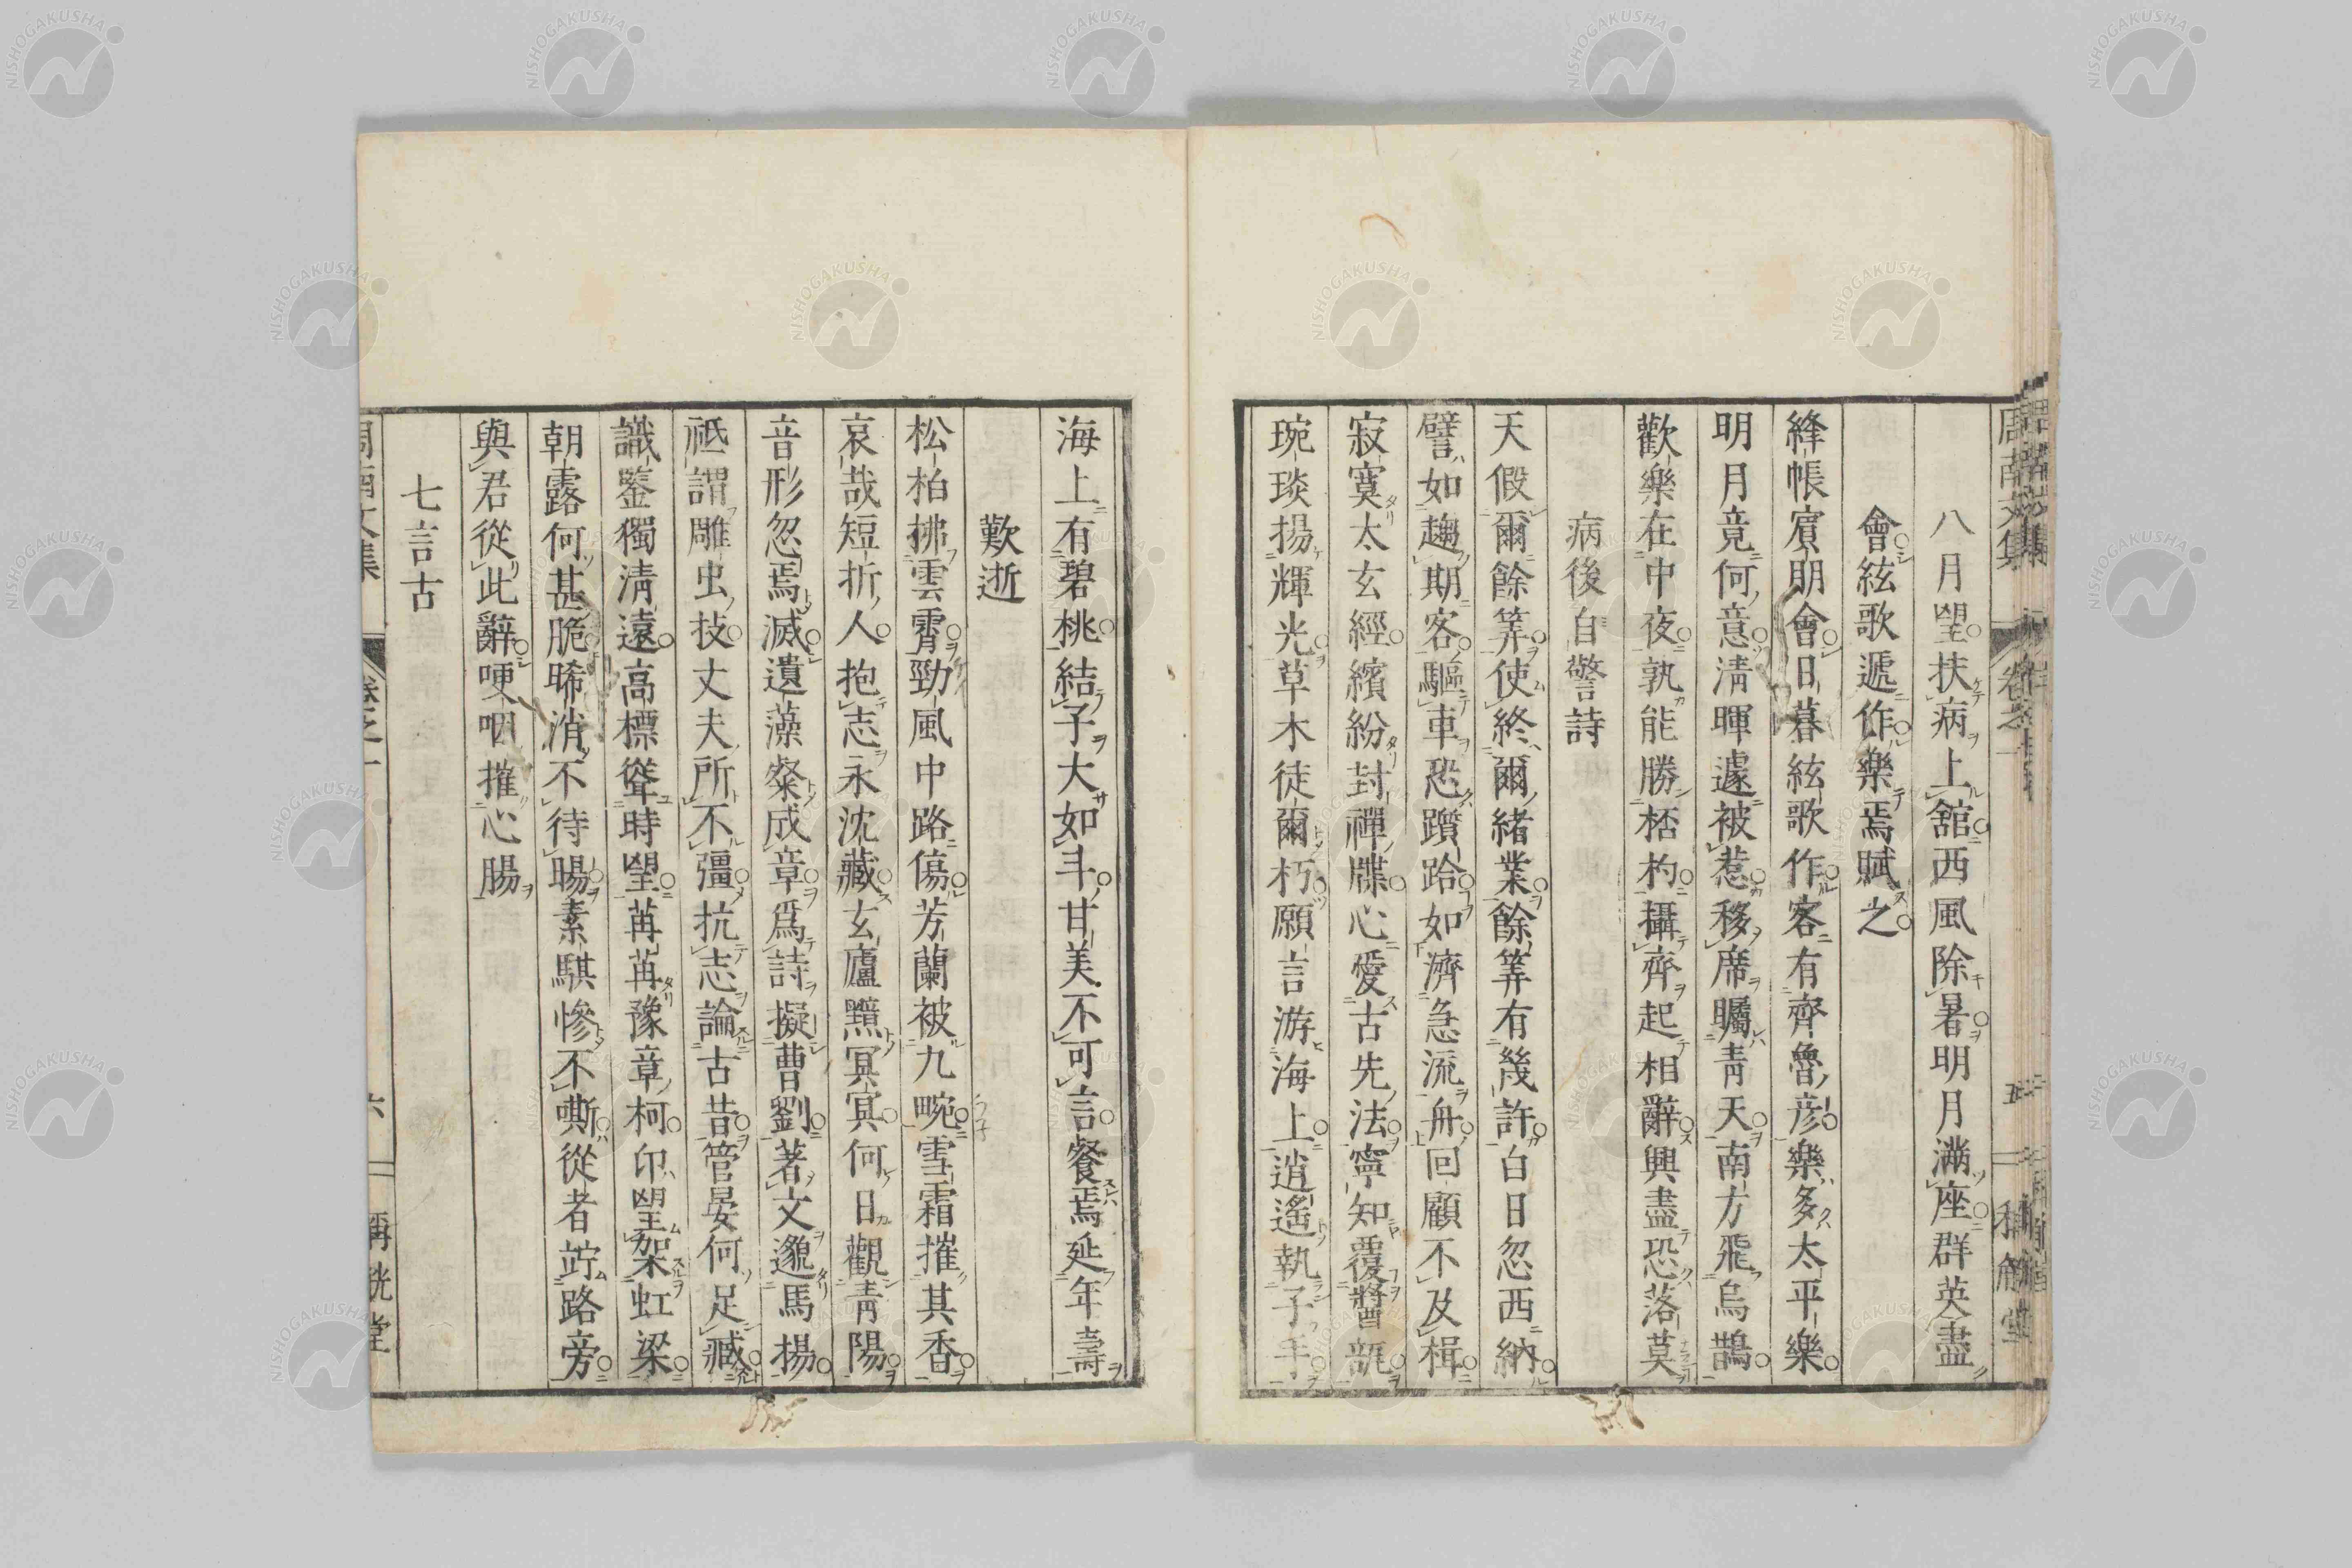 八月望扶病上舘西風除暑明月滿座群英盡
會絃歌遞作樂焉賦之
絳帳賓朋會日暮絃歌作客有齊魯彦樂多太平樂
明月竟何意淸暉遽被惹移席矚靑天南方飛烏鵲
歡樂在中夜孰能勝桮杓攝齊起相辭興盡恐落莫
病後自警詩
天假爾餘筭使終爾緖業餘筭有幾許白日忽西納
譬如趨期客驅車恐躓跲如濟急流舟回顧不及楫
寂寞太玄經繽紛封禪牒心愛古先法寧知覆醬瓿
琬琰揚輝光草木徒爾朽願言游海上逍遙執子手
海上有碧桃結子大如斗甘美不可言餐焉延年壽
歎逝
松柏拂雲霄勁風中路傷芳蘭被九畹雪霜摧其香
哀哉短折人抱志永沈藏玄廬黯冥冥何日觀靑陽
音形忽焉滅遺藻粲成章爲詩擬曹劉著文邈馬揚
祗謂雕虫技丈夫所不彊抗志論古昔管晏何足臧
識鑒獨淸遠高標聳時望苒苒豫章柯卬望架虹梁
朝露何甚脆晞消不待暘素騏慘不嘶從者竚路旁
與君從此辭哽咽摧心腸
七言古
周南文集 卷之一 六
NISHOGAKUSHA